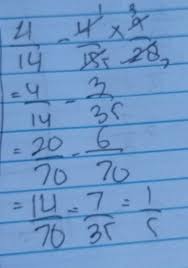 4/14 - 4/15 × 9/28 1 3 5 7
= 4/14 - 3/35
= 20/70 - 6/70
= 14/70 = 7/35 = 1/5